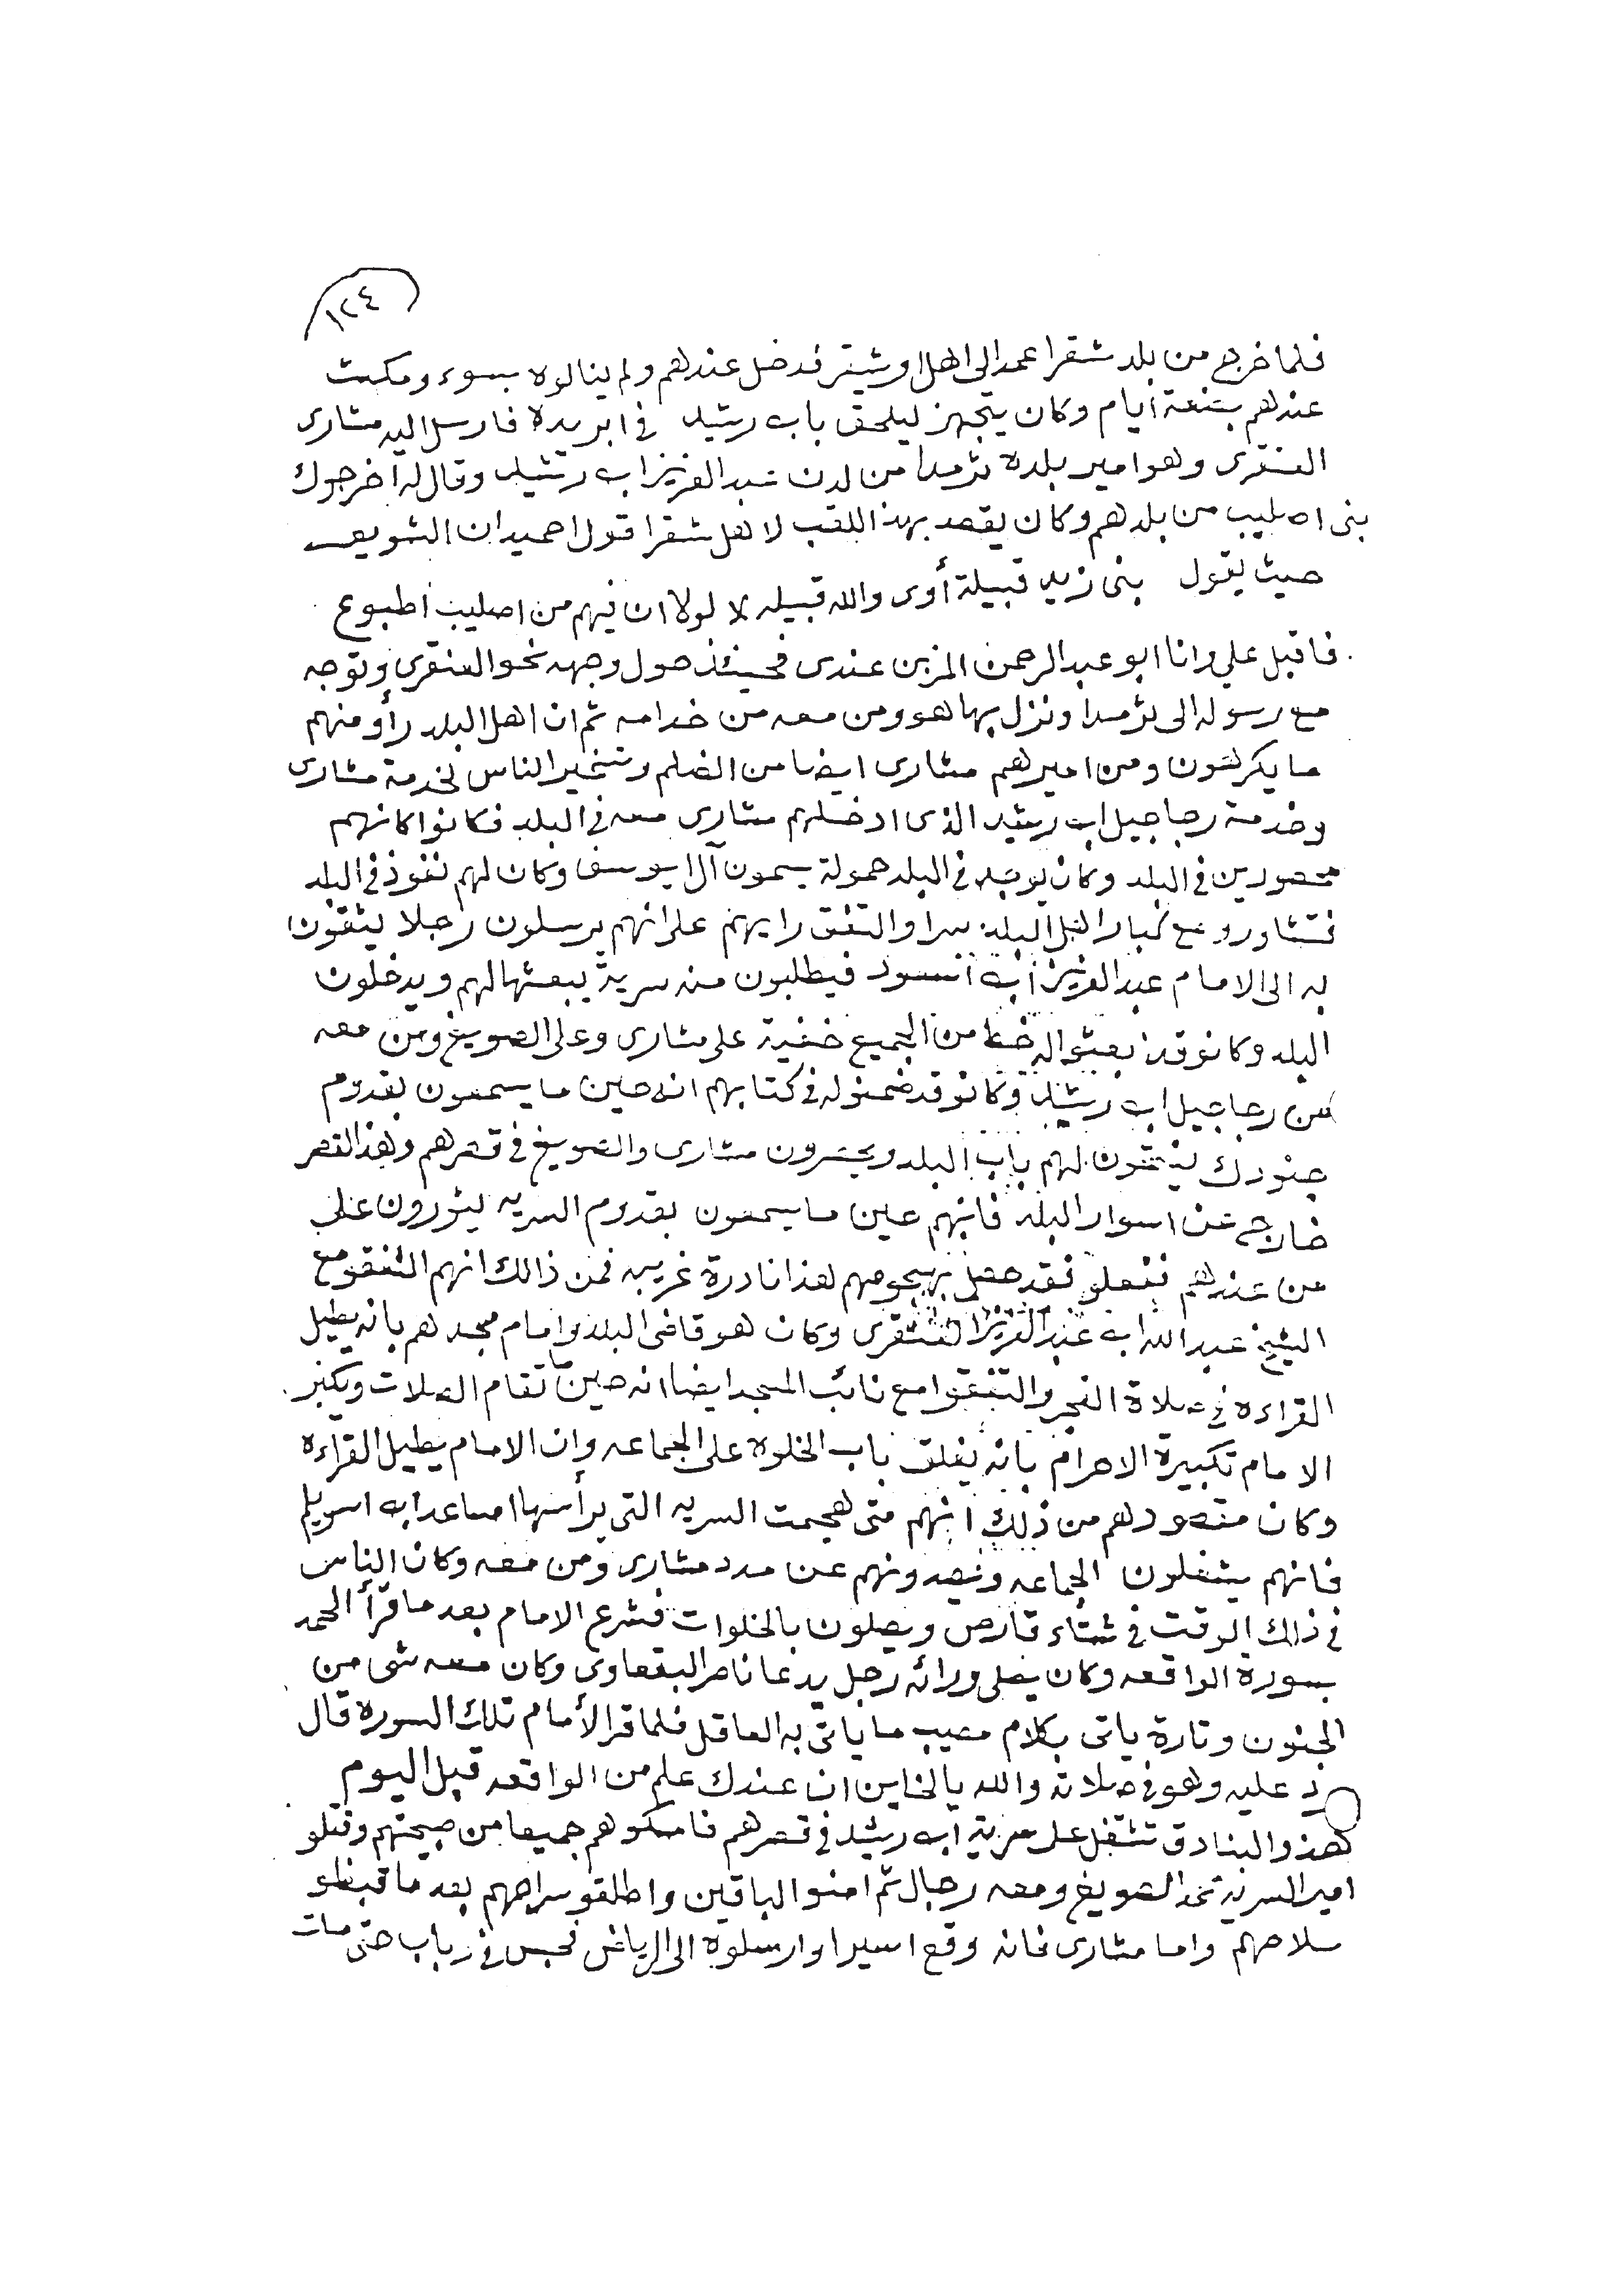 ١٢٤
فلما خرج من بلد شقرا عمد الى اهل اوشيقر فدخل عندهم ولم ينالوه بسوء ومكث
عندهم بضعة ايام وكان يتجهز ليلحق باب رشيد في ابريدة فارسل اليه مشارى
العنقرى وهو امير بلدة ثرمدا من لدن عبد العزيز اب رشيد وقال له اخرجوك
بنى اصليب من بلدهم وكان يقصد بهذا اللقب لاهل شقرا قول احميدان الشويعر
حيث يقول بنى زيد قبيلة أوى والله قبيله لا لولا ان فيهم من اصليب اطبوع
فاقبل علي وانا ابو عبد الرحمن المزبن عندى فحينئذ حول وجهه نحو العنقرى وتوجه
مع رسوله الى ثرمدا ونزل بها هو ومن معه من خدامه ثم ان اهل البلد رأو منهم
ما يكرهون ومن اميرهم مشارى ايضا من الضلم وتسخير الناس لخدمة مشارى
وخدمة رجاجيل اب رشيد الذى ادخلهم مشارى معه في البلد فكانوا كانهم
محصورين في البلد وكان يوجد في البلد حمولة يسمون آل ايوسف وكان لهم نفوذ في البلد
فتشاورو مع كبار اهل البلد سرا والتفق رايهم على انهم يرسلون رجلا يثقون
به الى الامام عبد العزيز اب اسعود فيطلبون منه سرية يبعثها لهم ويدخلون
البلد وكانو قد بعثوا له خط من الجميع خفية على مشارى وعلى الصويغ ومن معه
من رجاجيل اب رشيد وكانو قد ضمنوله في كتابهم انه حين ما يسمعون بقدوم
جنودك يفتحون لهم باب البلد ويحصرون مشارى والصويغ في قصرهم وهذا القصر
خارج عن اسوار البلد فانهم حين ما يسمعون بقدوم السريه يثورون على
من عندهم ففعلو فقد حصل بهجومهم هذا نادرة غريبه فمن ذالك انهم اتفقو مع
الشيخ عبد الله اب عبد العزيز العنقرى وكان هو قاضى البلد وامام مسجدهم بانه يطيل
القراءه في صلاة الفجر والتفقوا مع نائب المسجد ايضا انه حين تقام الصلات ويكبر
الامام تكبيرة الاحرام بانه يغلق باب الخلوه على الجماعه وان الامام يطيل القراءه
وكان مقصودهم من ذلك انهم متى هجمت السريه التى يرأسها امساعد اب اسويلم
فانهم يشغلون الجماعه ويصدونهم عن مدد مشارى ومن معه وكان الناس
في ذلك الوقت في شتاء قارص ويصلون بالخلوات فشرع الامام بعد ما قرأ الحمد
بسورة الواقعه وكان يصلى ورائه رجل يدعا ناصر البقعاوى وكان معه شى من
الجنون وتارة ياتى بكلام مصيب ما ياتى به العاقل فلما قرا الأمام تلك السوره قال
رد عليه وهو في صلاته والله يالخاين ان عندك علم من الواقعه قبل اليوم
هذ والبنادق تشتغل على سرية اب رشيد في قصرهم فامسكوهم جميعا من صبحتهم وقتلو
امير السرية الصويغ ومعه رجال ثم امنوا الباقين واطلقو سراحهم بعد ما قبظو
سلاحهم واما مشارى فانه وقع اسيرا وارسلوه الى الرياض فحبس في رباب حتى مات